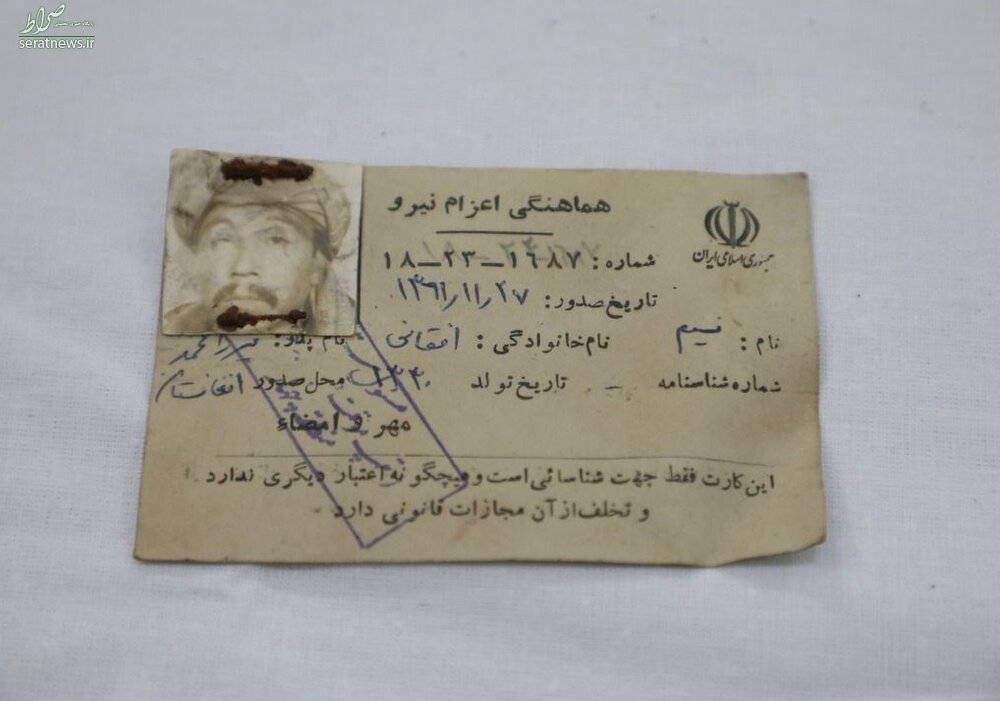 صراط
seratnews.ir
جمهوری اسلامی ایران
هماهنگی اعزام نیرو
شماره: ۱۸-۲۳-۱۶۸۷
تاریخ صدور: ۱۳۶۱/۱۱/۲۷
نام: نسیم نام خانوادگی: افغانی نام پدر:
شماره شناسنامه - تاریخ تولد محل صدور افغانستان
مهر و امضاء
این کارت فقط جهت شناسائی است و هیچگونه اعتبار دیگری ندارد
و تخلف از آن مجازات قانونی دارد